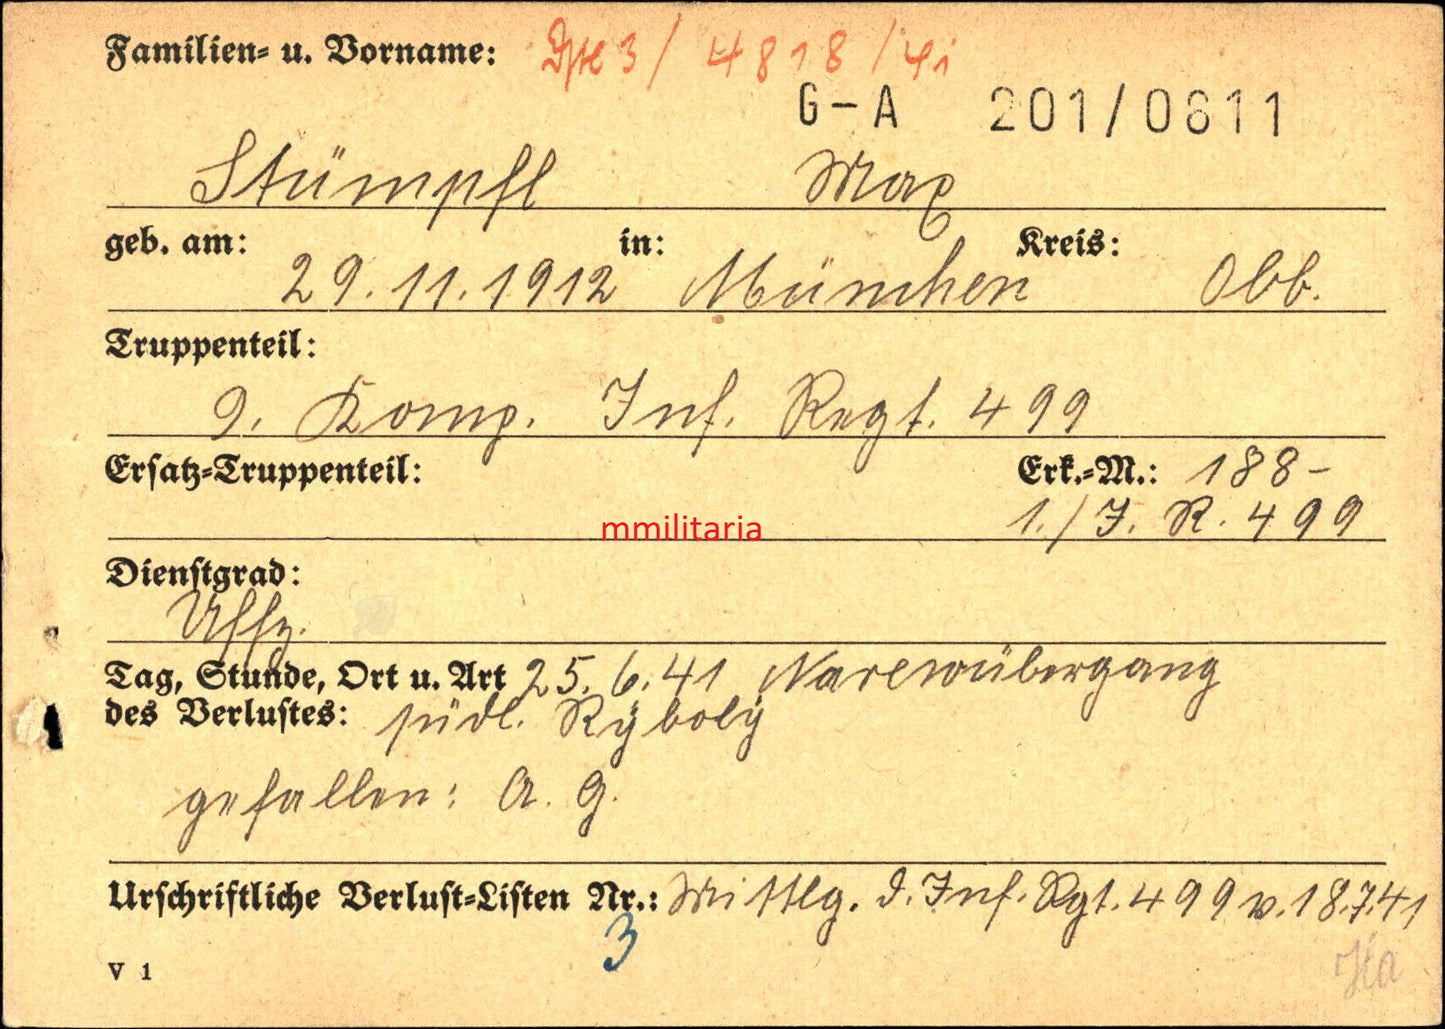 Familien- u. Vorname: 3 / 4818 / 41
G-A 201/0611
Stümpfl Max
geb. am: in: Kreis:
29.11.1912 München Obb.
Truppenteil:
9. Komp. Inf. Regt. 499
Ersatz-Truppenteil: Erk.-M.: 188-
1./J. R. 499
mmilitaria
Dienstgrad:
Uffz.
Tag, Stunde, Ort u. Art 25.6.41 Narewübergang
des Verlustes: südl. Ryboly
gefallen: A. G.
Urschriftliche Verlust-Listen Nr.: Mittlg. d. Inf. Rgt. 499 v. 18.7.41
3
V 1